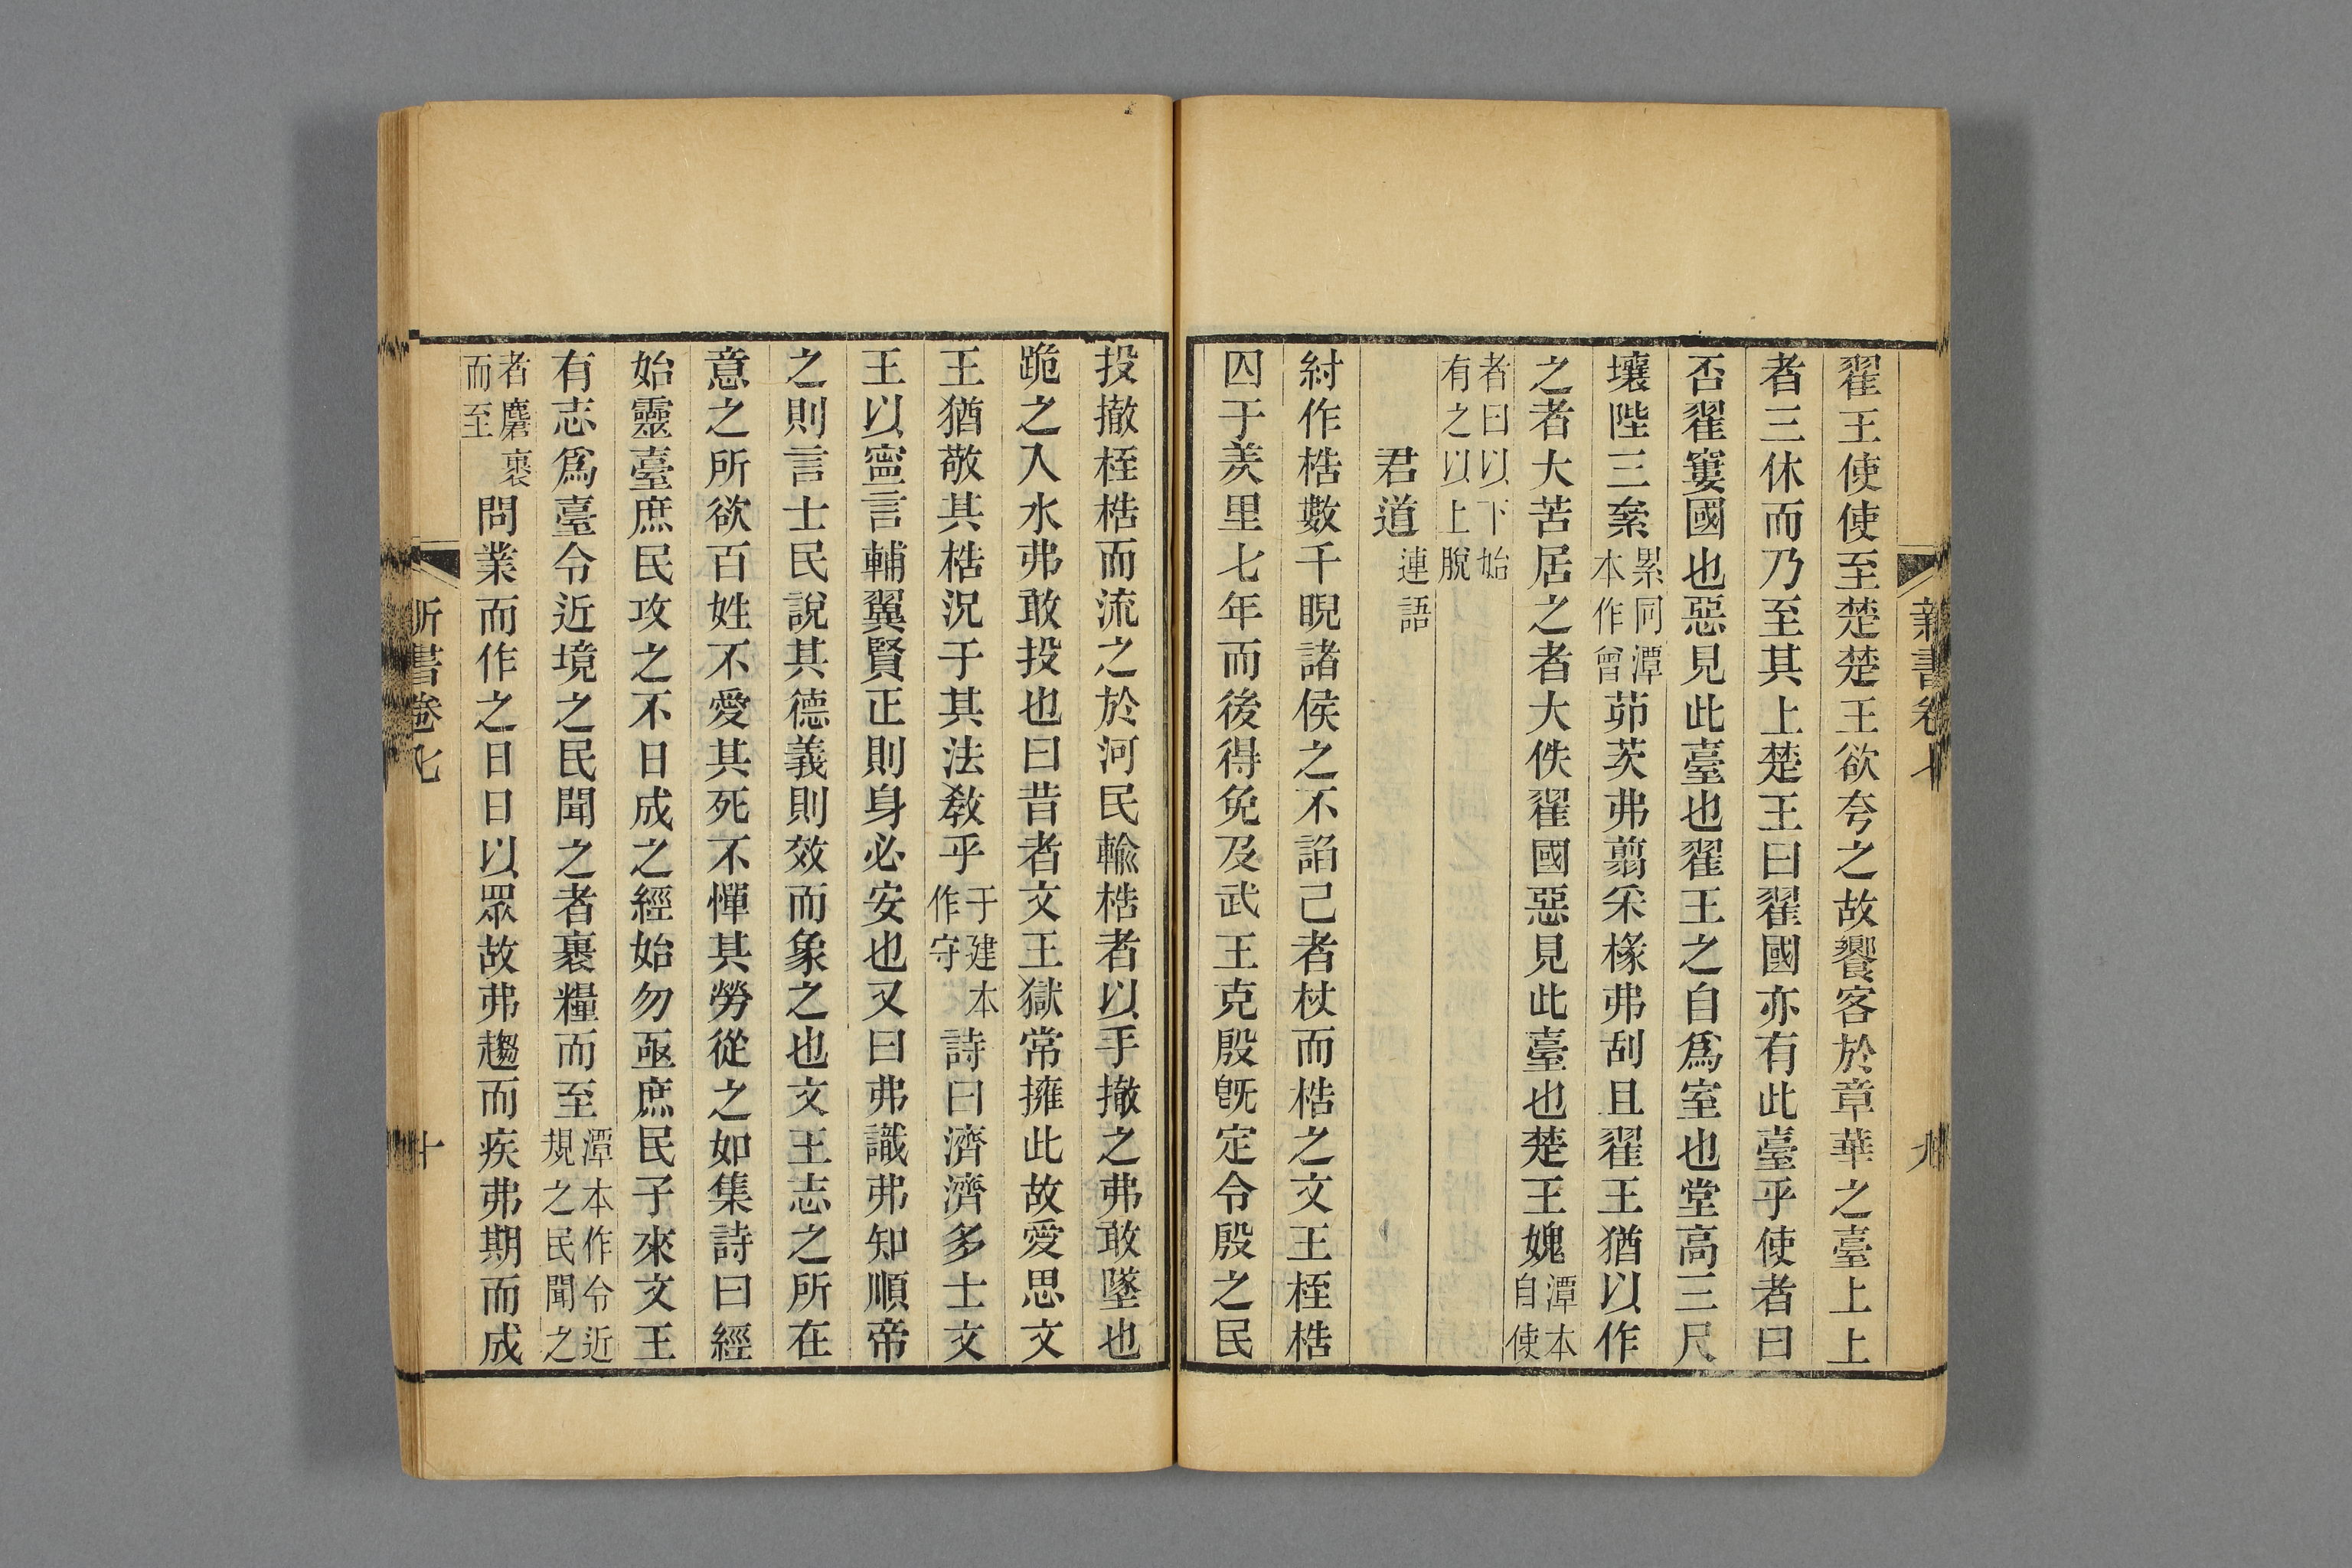 新書卷七
九
翟王使使至楚楚王欲夸之故饗客於章華之臺上上
者三休而乃至其上楚王曰翟國亦有此臺乎使者曰
否翟窶國也惡見此臺也翟王之自爲室也堂高三尺
壤陛三絫累同潭本作曾茆茨弗翦采椽弗刮且翟王猶以作
之者大苦居之者大佚翟國惡見此臺也楚王媿潭本自使
者曰以下始有之以上脫
君道連語
紂作梏數千睨諸侯之不諂己者杖而梏之文王桎梏
囚于羑里七年而後得免及武王克殷旣定令殷之民
投撤桎梏而流之於河民輸梏者以手撤之弗敢墜也
跪之入水弗敢投也曰昔者文王獄常擁此故愛思文
王猶敬其梏況于其法敎乎于建本作守詩曰濟濟多士文
王以寍言輔翼賢正則身必安也又曰弗識弗知順帝
之則言士民說其德義則效而象之也文王志之所在
意之所欲百姓不愛其死不憚其勞從之如集詩曰經
始靈臺庶民攻之不日成之經始勿亟庶民子來文王
有志爲臺令近境之民聞之者裹糧而至潭本作令近規之民聞之
者麕裹而至問業而作之日日以眾故弗趨而疾弗期而成
新書卷七
十